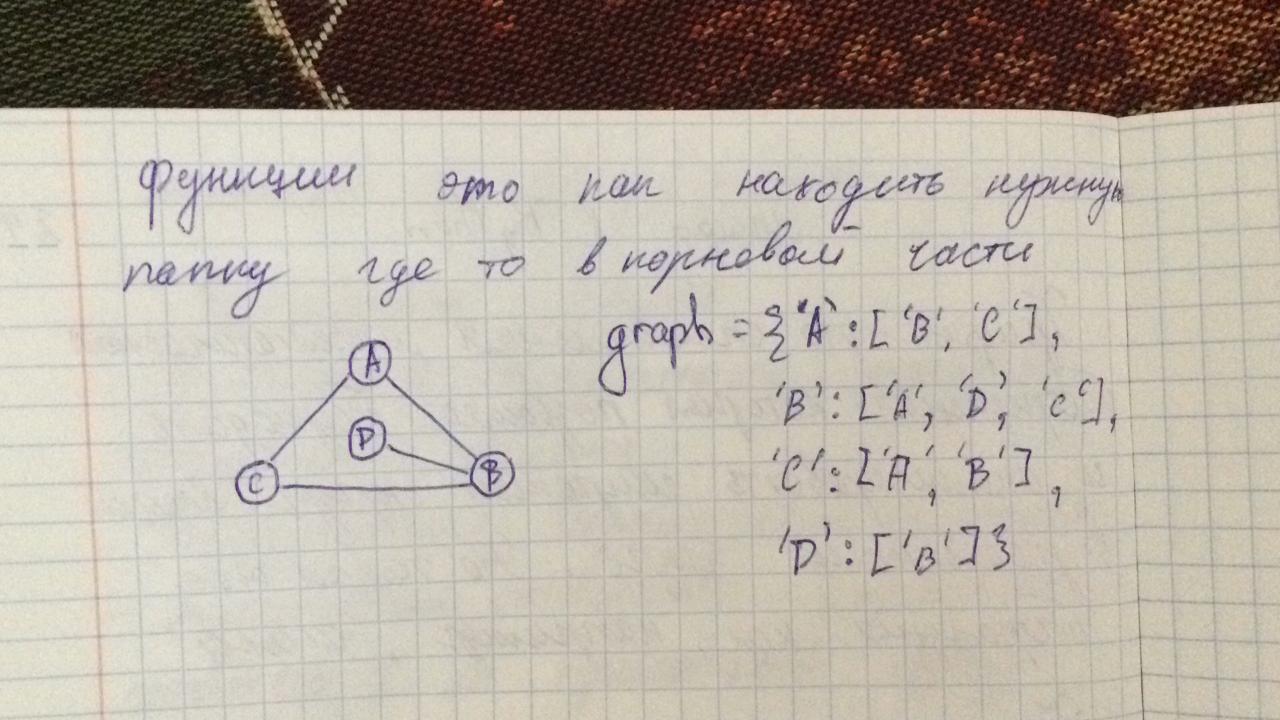 функции это как находить нужную
папку где то в корновой части
graph = {'A' : ['B', 'C'],
'B' : ['A', 'D', 'C'],
'C' : ['A', 'B'],
'D' : ['B']}
A
D
C
B